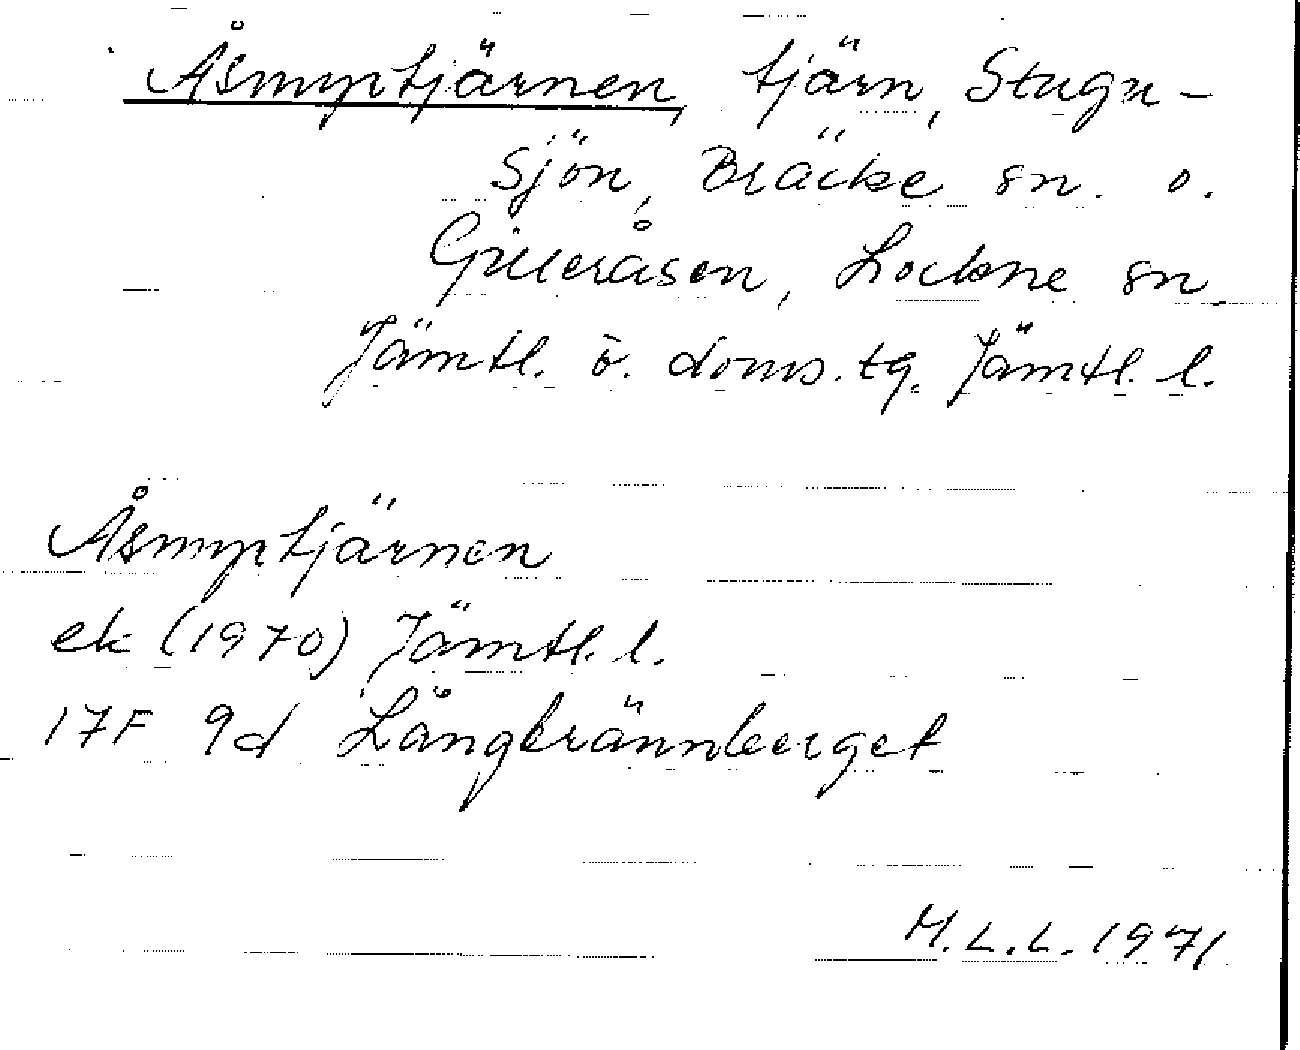 Åsmyrtjärnen, tjärn, Stugu-
sjön, Bräcke sn. o.
Gilleråsen, Lockne sn
Jämtl. ö. doms. tg. Jämtl. l.
Åsmyrtjärnen
ek (1970) Jämtl. l.
17F 9d Långbrännberget
M.L.L. 1971